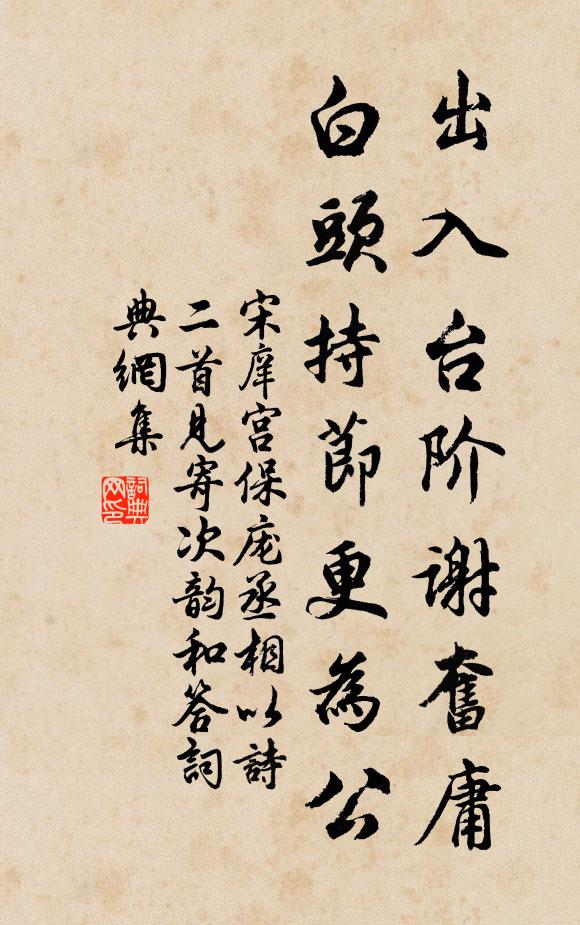 出入台阶谢奮庸
白頭持節更為公
宋庠宫保庞丞相以詩
二首見寄次韵和答詞
典網集
詞典
网印